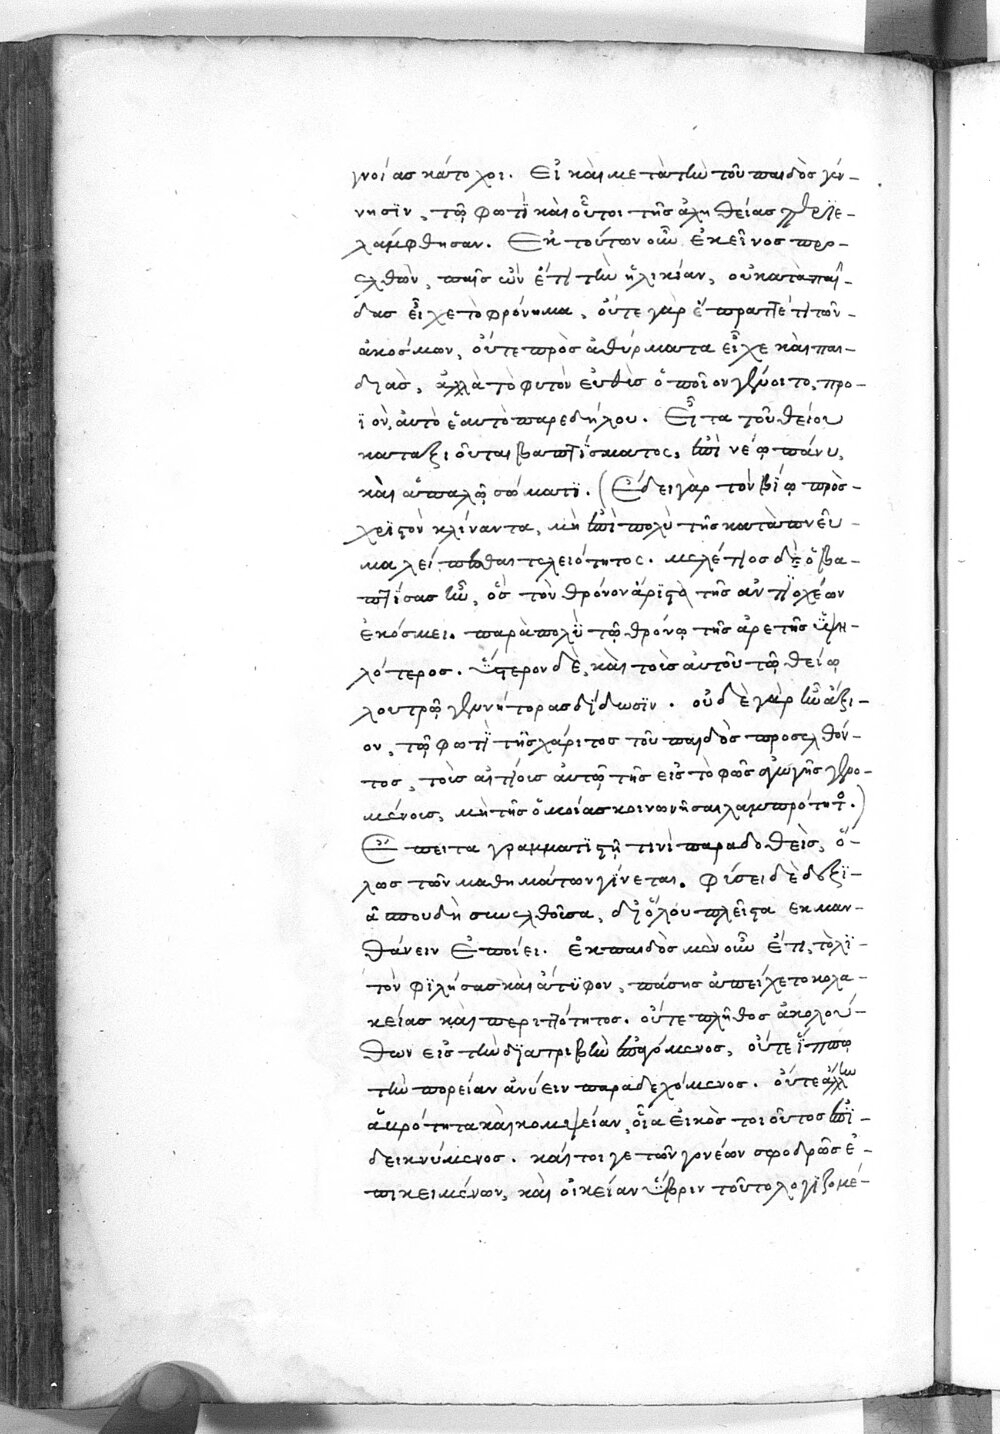 γνοίας κάτοχοι. Εἰ καὶ μετὰ τὴν τοῦ παιδὸς γέν-
νησϊν, τῷ φωτῒ καὶ οὗτοι τῆς ἀληθείας
λάμφθησαν. Ἐκ τούτων οὖν ἐκεῖνος προ-
ελθὼν, παῖς ὢν ἔτι τὴν ἡλικίαν, οὐ κατὰ παῖ-
δας εἶχε τὸ φρόνημα, οὔτε γὰρ ἔπραττέ τι τῶν
ἀκοσμων, οὔτε πρὸς ἀθύρματα εἶχε καὶ παι-
διὰς, ἀλλὰ τὸ φυτὸν εὐθὺς ὁποῖον γένοιτο, προ-
ϊὸν, αὐτὸ ἑαυτὸ παρεδήλου. Εἶτα τοῦ θείου
καταξιοῦται βαπτίσματος, ἐπὶ νέῳ πάνυ,
καὶ ἁπαλῷ σώματϊ. (Ἔδει γὰρ τὸν βίῳ πρὸς
χριστὸν κλίναντα, μὴ ἐπὶ πολὺ τῆς κατὰ πνεῦ-
μα λείπεσθαι τελειότητος. μελέτιος δὲ ὁ βα-
πτίσας ἦν, ὃς τὸν θρόνον ἄριστα τῆς ἀντϊοχέων
ἐκόσμει. παρὰ πολὺ τῷ θρόνῳ τῆς ἀρετῆς ὑψη-
λότερος. ὕστερον δὲ, καὶ τοῖς αὐτοῦ τῷ θείῳ
λουτρῷ γεννήτορας δίδωσϊν. οὐδὲ γὰρ ἦν ἄξι-
ον, τῷ φωτῒ τῆς χάριτος τοῦ παιδὸς προσελθόν-
τος, τοῖς αἰτίοις αὐτῷ τῆς εἰς τὸ φῶς ἀγωγῆς γενο-
μένοις, μὴ τῆς ὁμοίας κοινωνῆσαι λαμπρότητος.)
Ἔπειτα γραμματϊστῇ τινὶ παραδοθεὶς, ὅ-
λως τῶν μαθημάτων γίνεται. Φύσει δὲ δεξϊ-
ᾷ σπουδὴ συνελθοῦσα, δι' ὀλίγου πλεῖστα ἐκμαν-
θάνειν ἐποίει. ἐκ παιδὸς μὲν οὖν ἔτι, τὸ λϊ-
τὸν φϊλήσας καὶ ἄτυφον, πάσης ἀπείχετο κολα-
κείας καὶ περιττότητος. οὔτε πλῆθος ἀκολού-
θων εἰς τὴν δϊατριβὴν ἐπαγόμενος, οὔτε ἵππῳ
τὴν πορείαν ἀνύειν παραδεχόμενος. οὔτε ἄλλην
ἁβρότητα καὶ κομψείαν, οἷα εἰκὸς τοιοῦτος ἐπϊ-
δεικνύμενος. καίτοιγε τῶν γονέων σφοδρῶς ἐ-
πικειμένων, καὶ οἰκείαν ὕβριν τοῦτο λογϊζομέ-